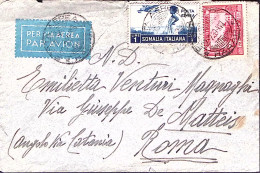 PER VIA AEREA
PAR AVION
POSTA AEREA
SOMALIA ITALIANA
N. D.
Emilietta Venturi Magnaghi
Via Giuseppe De Matteis
(Angolo Via Catania)
Roma